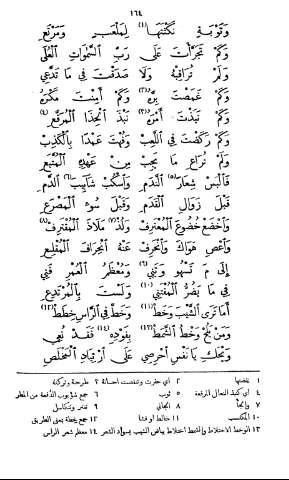 ١٦٤
وَتَوْبَةٍ نَكَثْتَهَا (١) لِمَلْعَبٍ وَمَرْتَعِ
وَكَمْ تَجَرَّأْتَ عَلَى رَبِّ السَّمٰوَاتِ الْعُلَى
وَلَمْ تُرَاقِبْهُ وَلَا صَدَقْتَ فِي مَا تَدَّعِي
وَكَمْ غَمَصْتَ بِرَّهُ (٢) وَكَمْ أَمِنْتَ مَكْرَهُ
وَكَمْ نَبَذْتَ أَمْرَهُ (٣) نَبْذَ الْحِذَا الْمُرَقَّعِ (٤)
وَكَمْ رَكَضْتَ فِي اللَّعِبْ وَفُهْتَ عَمْدًا بِالْكَذِبْ
وَلَمْ تُرَاعِ مَا يَجِبْ مِنْ عَهْدِهِ الْمُتَّبَعِ
فَالْبَسْ شِعَارَ (٥) النَّدَمِ وَاسْكُبْ شَآبِيبَ (٦) الدَّمِ
قَبْلَ زَوَالِ الْقَدَمِ وَقَبْلَ سُوءِ الْمَصْرَعِ
وَاخْضَعْ خُضُوعَ الْمُعْتَرِفْ وَلُذْ (٧) مَلَاذَ الْمُقْتَرِفْ (٨)
وَاعْصِ هَوَاكَ وَانْحَرِفْ عَنْهُ انْحِرَافَ الْمُقْلِعِ
إِلَى مَ تَسْهُو وَتَنِي (٩) وَمُعْظَمُ الْعُمْرِ فَنِي
فِي مَا يَضُرُّ الْمُقْتَنِي (١٠) وَلَسْتَ بِالْمُرْتَدِعِ
أَمَا تَرَى الشَّيْبَ وَخَطَ (١١) وَخَطَّ فِي الرَّاسِ خِطَطْ (١٢)
وَمَنْ يَلُحْ وَخْطُ الشَّمَطْ (١٣) بِفَوْدِهِ (١٤) فَقَدْ نُعِي
وَيْحَكِ يَا نَفْسِ احْرِصِي عَلَى ارْتِيَادِ الْمَخْلَصِ
١ نقضتها ٢ اي حقرت وتنقصت احسانهُ ٣ طرحتهُ وتركتهُ
٤ اي كنبذ النعال المرقعة ٥ ثوب ٦ جمع شؤبوب الدفعة من المطر
٧ والجأ ٨ الجاني ٩ تفتر وتتكاسل
١٠ المكتسب ١١ خالط او فشا ١٢ جمع خطة بمعنى الطريق
١٣ الوخط الاختلاط والشمط اختلاط بياض الشيب بسواد الشعر ١٤ معظم شعر الراس